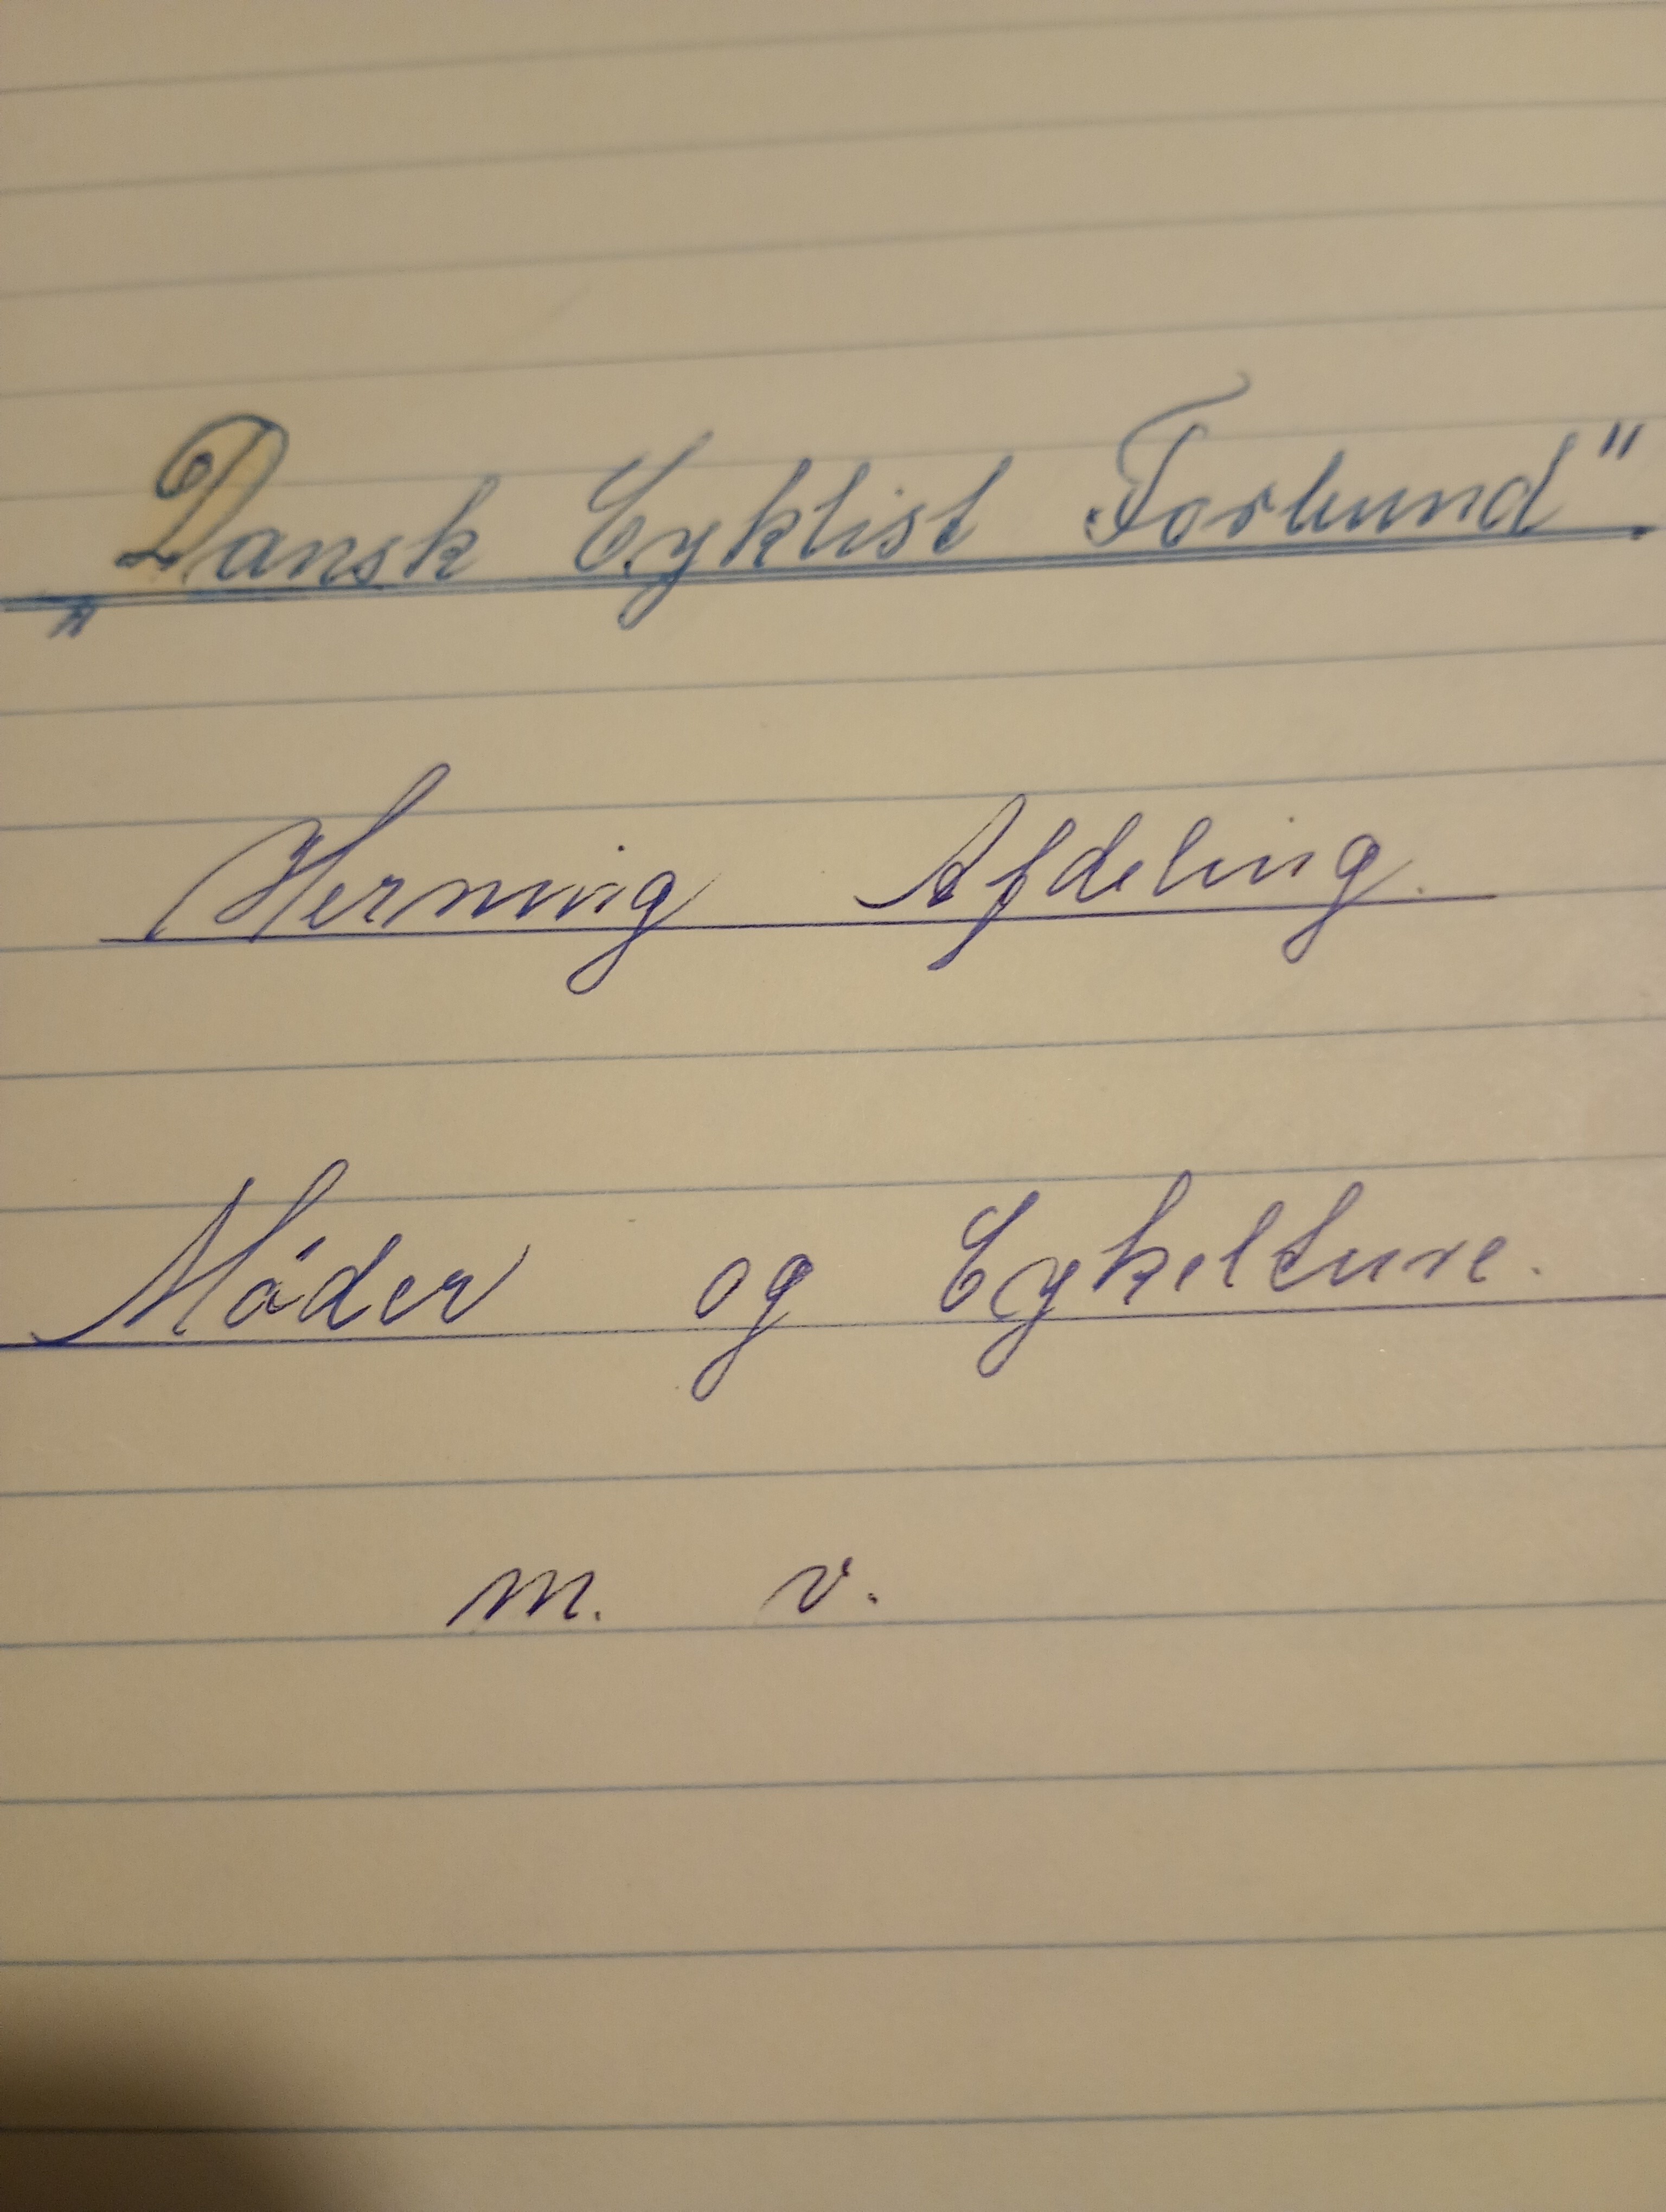 „Dansk Cyklist Forbund"
Herning Afdeling.
Móder og Cykelture.
m. v.